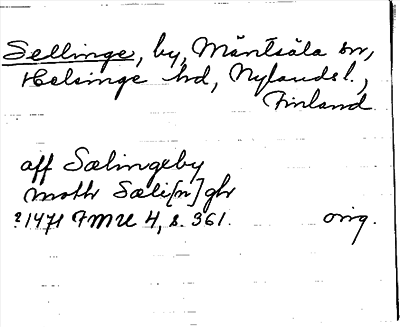 Sellinge, by, Mäntsälä sn,
Helsinge hd, Nylands l.,
Finland
aff Sælingeby
moth Sæli[n]gh
?1471 FMU 4, s. 361. orig.